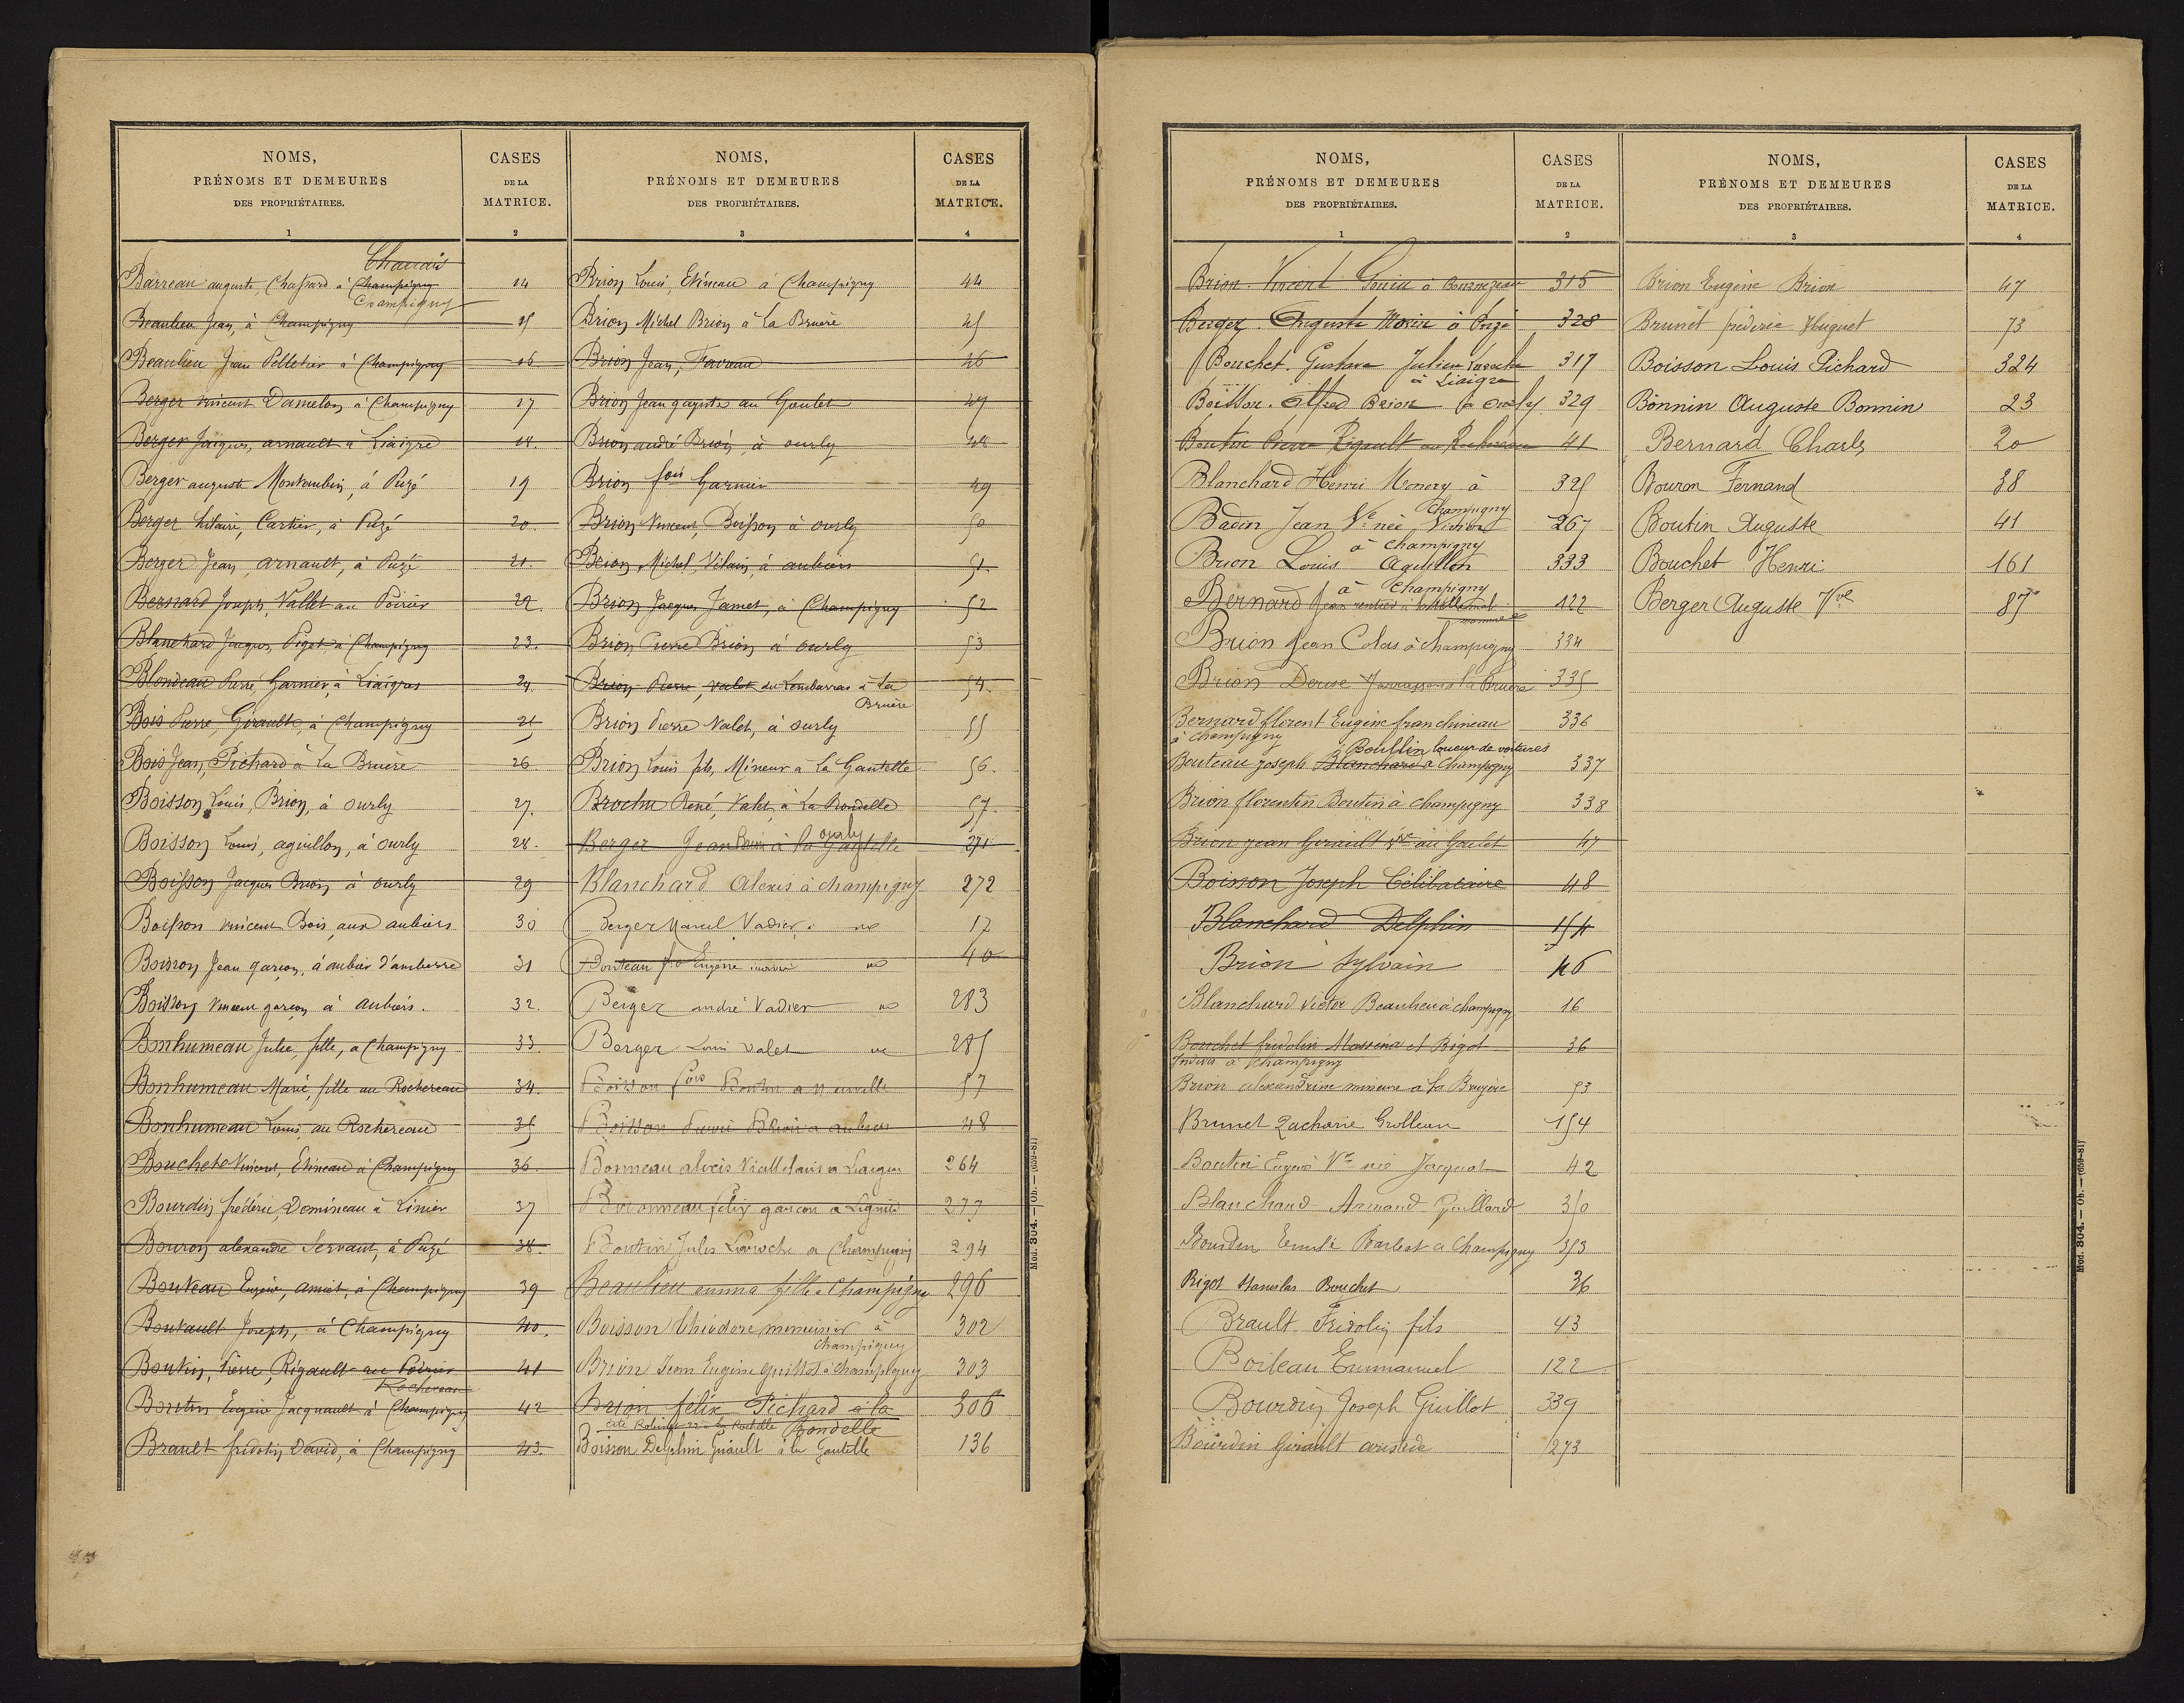 NOMS,
PRÉNOMS ET DEMEURES
DES PROPRIÉTAIRES.
1
CASES
DE LA
MATRICE.
2
Barreau auguste, Chassard à Champigny 14
Champigny
Beaulieu Jean, à Champigny 15
Beaulieu Jean Pelletier à Champigny 16
Berger vincent Damelon à Champigny 17
Berger Jacques, arnault à Liaigre 18.
Berger auguste Montembin, à Puzé 19
Berger hilaire, Cartier, à Puzé 20.
Berger Jean, arnault, à Puzé 21.
Bernard Joseph, Vallet au Poirier 22.
Blanchard Jacques, Pigot à Champigny 23.
Blondeau Pierre, Garnier, à Liaigres 24.
Bois Pierre, Girault, à Champigny 25
Bois Jean, Pichard à La Bruère 26
Boisson Louis, Brion, à ourly 27.
Boisson Louis, aguillon, à ourly 28.
Boisson Jacques Brion à ourly 29
Boisson vincent Bois aux aubiers 30
Boisson Jean garçon, à aubier d'amberre 31
Boisson Vincent garçon à aubiers. 32.
Bonhumeau Julie, fille, à Champigny 33.
Bonhumeau Marie, fille au Rochereau 34.
Bonhumeau Louis au Rochereau 35
Bouchet Vincent, Etineau à Champigny 36.
Bourdin frédéric, Domineau à Linier 37
Bouron alexandre Servant, à Puzé 38.
Bouteau Eugène, amiet, à Champigny 39
Boutault Joseph, à Champigny 40.
Boutin, Pierre, Rigault au Poirier 41
Rochereau
Boutin Eugène Jacquault à Champigny 42
Brault fridolin David, à Champigny 43.
NOMS,
PRÉNOMS ET DEMEURES
DES PROPRIÉTAIRES.
3
CASES
DE LA
MATRICE.
4
Brion Louis, Etineau à Champigny 44
Brion Michel Brion à La Bruère 45
Brion Jean, Favreau 46
Brion Jean garçon au Goulet 47
Brion andré Brion, à ourly 48
Brion fois Garnier 49
Brion Vincent, Boisson à ourly 50
Brion, Michel, Vilain, à aubiers 51
Brion Jacques Jamet, à Champigny 52
Brion Pierre Brion à ourly 53
Brion Pierre, valet à La 54.
Bruère
Brion Pierre Valet, à ourly 55
Brion Louis fils, Mineur à La Gautelle 56.
Brochu René, Valet, à La Rondelle 57.
ourly
Berger Jean Brion à la Gautelle 271
Blanchard Alexis à champigny 272
Berger Marcel Vadier 17
Bouteau Eugène 40
Berger andré Vadier 283
Berger Louis Valet 285
Boisson fois Boutin a Neuville 57
Boisson Brion a aubiers 48
Bonneau alexis Vieilletaris a Liaigres 264
Bironneau félix garçon a 277
Boutin Jules Laroche a Champigny 294
Beaulieu emma fille a Champigny 296
Boisson Théodore menuisier à 302
Champigny
Brion Jean Eugène Guillot à champigny 303
Brion félix Pichard à la 306
Rondelle
Boisson Delphin Girault à la Gautelle 136
Mod. 304. — Ob. — (659-81)
NOMS,
PRÉNOMS ET DEMEURES
DES PROPRIÉTAIRES.
1
CASES
DE LA
MATRICE.
2
Brion. Vincent 315
Berger. Auguste Morin à Puzé 328
Bouchet. Gustave Julien Laroche 317
à Liaigre
Boisson. Alfred Brion 329
Boutin Pierre Rigault au Rochereau 41
Blanchard Henri Memery à 325
Champigny
Badin Jean Ve née Vivion 267
à champigny
Brion Louis Aguillon 333
à Champigny
Bernard Jean 122
Brion Jean Colas à champigny 334
Brion Derise à la Bruère 335
Bernard florent Eugène franchineau 336
à champigny
Boullin loueur de voitures
Bouteau joseph Blanchard à Champigny 337
Brion florentin Boutin à champigny 338
Brion jean Girault Vve au Goulet 47
Boisson Joseph Célibataire 48
Blanchard Delphin 154
Brion Sylvain 46
Blanchard victor Beaulieu à champigny 16
Bouchet fridolin Massena et Bigot 36
Indivis à Champigny
Brion alexandrine mineure à la Bruyère 53
Brunet Zacharie Grolleau 154
Boutin Eugène Ve née Jacquot 42
Blanchard Armand Guillard 350
Bourdin Barbot a Champigny 353
Bigot Stanislas Bouchet 36
Brault Fridolin fils 43
Boileau Emmanuel 122
Bourdin Joseph Guillot 339
Bourdin Girault aristide 273
NOMS,
PRÉNOMS ET DEMEURES
DES PROPRIÉTAIRES.
3
CASES
DE LA
MATRICE.
4
Brion Eugène Brion 47
Brunet frédéric Huguet 73
Boisson Louis Pichard 324
Bonnin Auguste Bonnin 23
Bernard Charles 20
Bouron Fernand 38
Boutin Auguste 41
Bouchet Henri 161
Berger Auguste Vve 87
Mod. 304. — Ob. — (659-81)